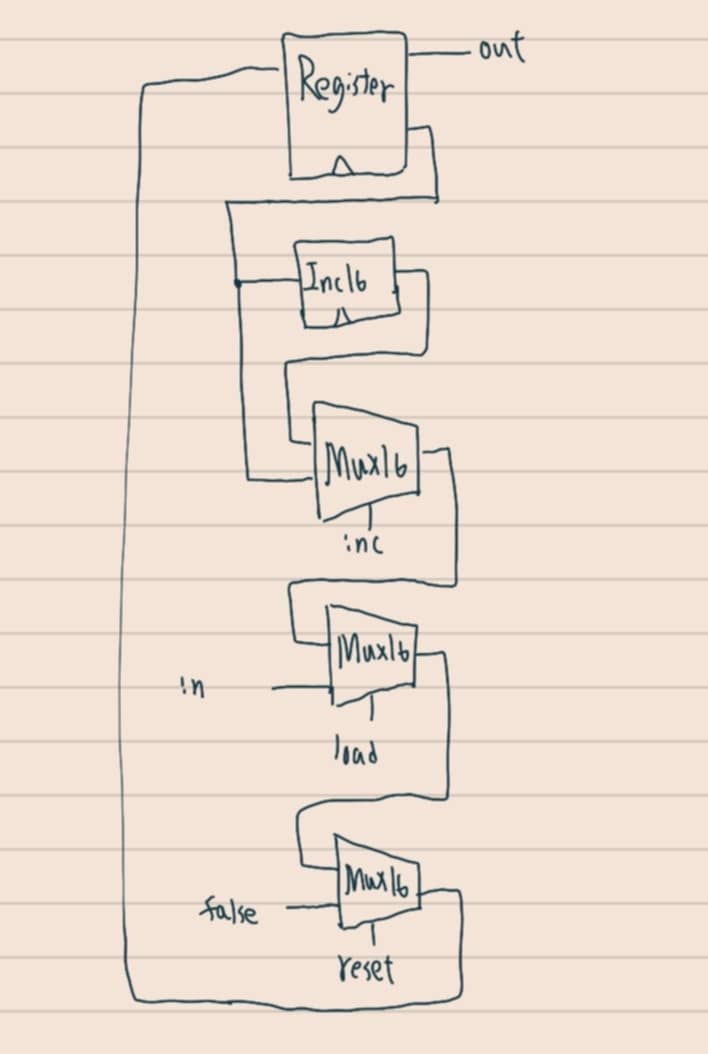 out
Register
Inc16
Mux16
inc
Mux16
in
load
Mux16
false
reset